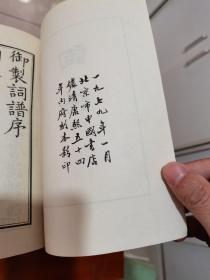 一九七九年一月
北京市中國書店
據清康熙五十四
年内府刻本影印
御製詞譜序